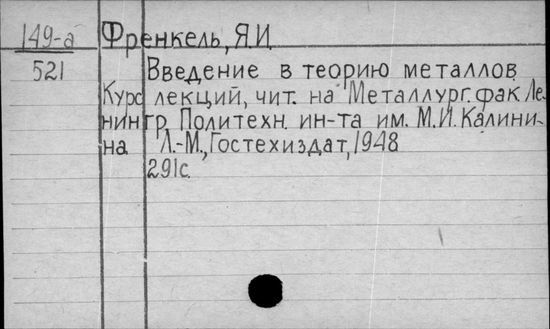 149-а Френкель, Я.И.
521 Введение в теорию металлов
Курс лекций, чит. на Металлург. фак. Ле-
нингр. Политехн. ин-та им. М.И. Калини-
на Л.-М., Гостехиздат, 1948
291с.